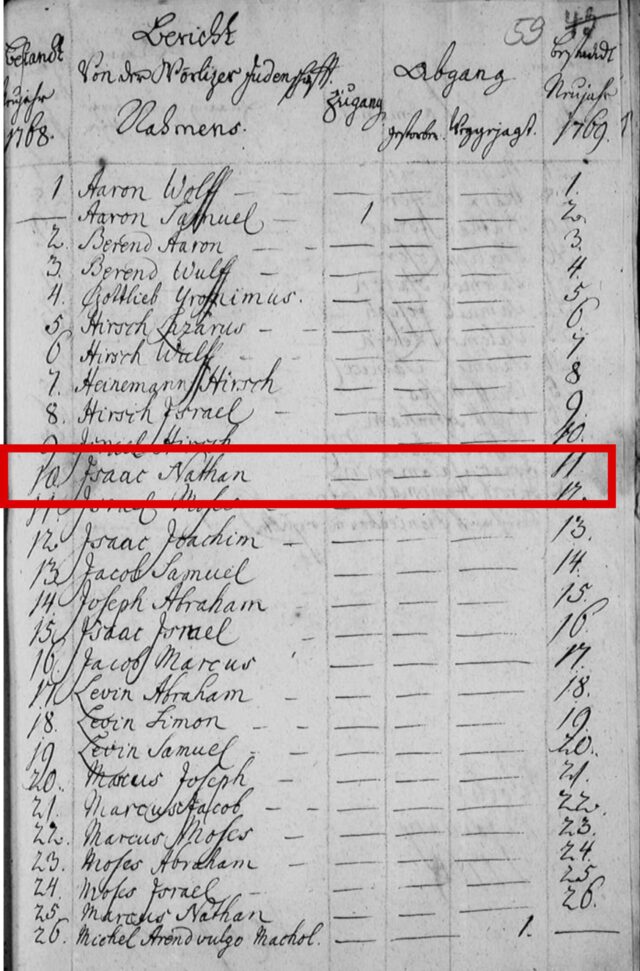 59 43
Bestandt Neujahr 1768.
Bericht
Von der Wörlizer Judenschafft
Nahmens.
Zugang
Abgang
gestorben.
Bestandt Neujahr 1769.
1 Aaron Wolff — — — 1.
— Aaron Samuel 1 — — 2.
2. Berend Aaron — — — 3.
3. Berend Wulff — — — 4.
4. Gottlieb — — — 5
5 Hirsch Lazarus — — — 6
6 Hirsch Wulff — — — 7
7. Heinemann Hirsch — — — 8
8. Hirsch Israel — — — 9.
9 Israel Hirsch — — — 10.
10 Isaac Nathan — — — 11
11. Israel Moses — — — 12.
12. Isaac Joachim — — — 13.
13. Jacob Samuel — — — 14.
14. Joseph Abraham — — — 15.
15. Isaac Israel — — — 16.
16. Jacob Marcus — — — 17.
17. Levin Abraham — — — 18.
18. Levin Simon — — — 19.
19 Levin Samuel — — — 20.
20. Marcus Joseph — — — 21.
21. Marcus Jacob — — — 22.
22. Marcus Moses — — — 23.
23. Moses Abraham — — — 24.
24. Moses Israel — — — 25
25 Marcus Nathan — — — 26.
26. Michel Arend vulgo Machol. — — 1. —